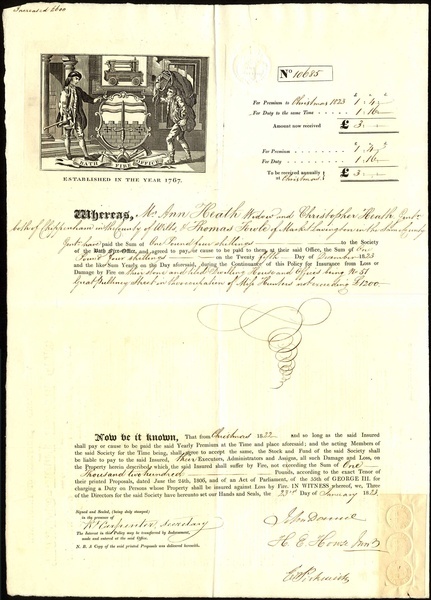 Increased £600
No 10685
For Premium to Christmas 1823 1 " 4 "
For Duty to the same Time 1 . 16
Amount now received £ 3
For Premium 1 " 4 "
For Duty 1 . 16
To be received annually at Christmas £ 3
BATH FIRE OFFICE
ESTABLISHED IN THE YEAR 1767.
Whereas, Mrs Ann Heath Widow and Christopher Heath Gent
both of Chippenham in the County of Wilts & Thomas Fowle of Market Lavington in the same County
Gent have paid the Sum of One Pound four shillings to the Society
of the Bath Fire-Office, and agreed to pay, or cause to be paid to them, at their said Office, the Sum of One
Pound four shillings on the Twenty fifth Day of December 1823
and the like Sum Yearly on the Day aforesaid, during the Continuance of this Policy for Insurance from Loss or
Damage by Fire on their stone and tiled Dwelling House and Offices being No 51
Great Pulteney Street in the occupation of Miss Hunters not exceeding £1200
Now be it known, That from Christmas 1822 and so long as the said Insured
shall pay or cause to be paid the said Yearly Premium at the Time and place aforesaid; and the acting Members of
the said Society for the Time being, shall agree to accept the same, the Stock and Fund of the said Society shall
be liable to pay to the said Insured, their Executors, Administrators and Assigns, all such Damage and Loss, on
the Property herein described which the said Insured shall suffer by Fire, not exceeding the Sum of One
Thousand two hundred Pounds, according to the exact Tenor of
their printed Proposals, dated June 24th, 1806, and of an Act of Parliament, of the 55th of GEORGE III. for
charging a Duty on Persons whose Property shall be insured against Loss by Fire. IN WITNESS whereof, we, Three
of the Directors for the said Society have hereunto set our Hands and Seals, the 23rd Day of January 1823
Signed and Sealed, (being duly stamped)
in the presence of
Rd Carpenter, Secretary
The Interest in this Policy may be transferred by Indorsement,
made and entered at the said Office.
N. B. A Copy of the said printed Proposals was delivered herewith.
H. E. Howse Junr